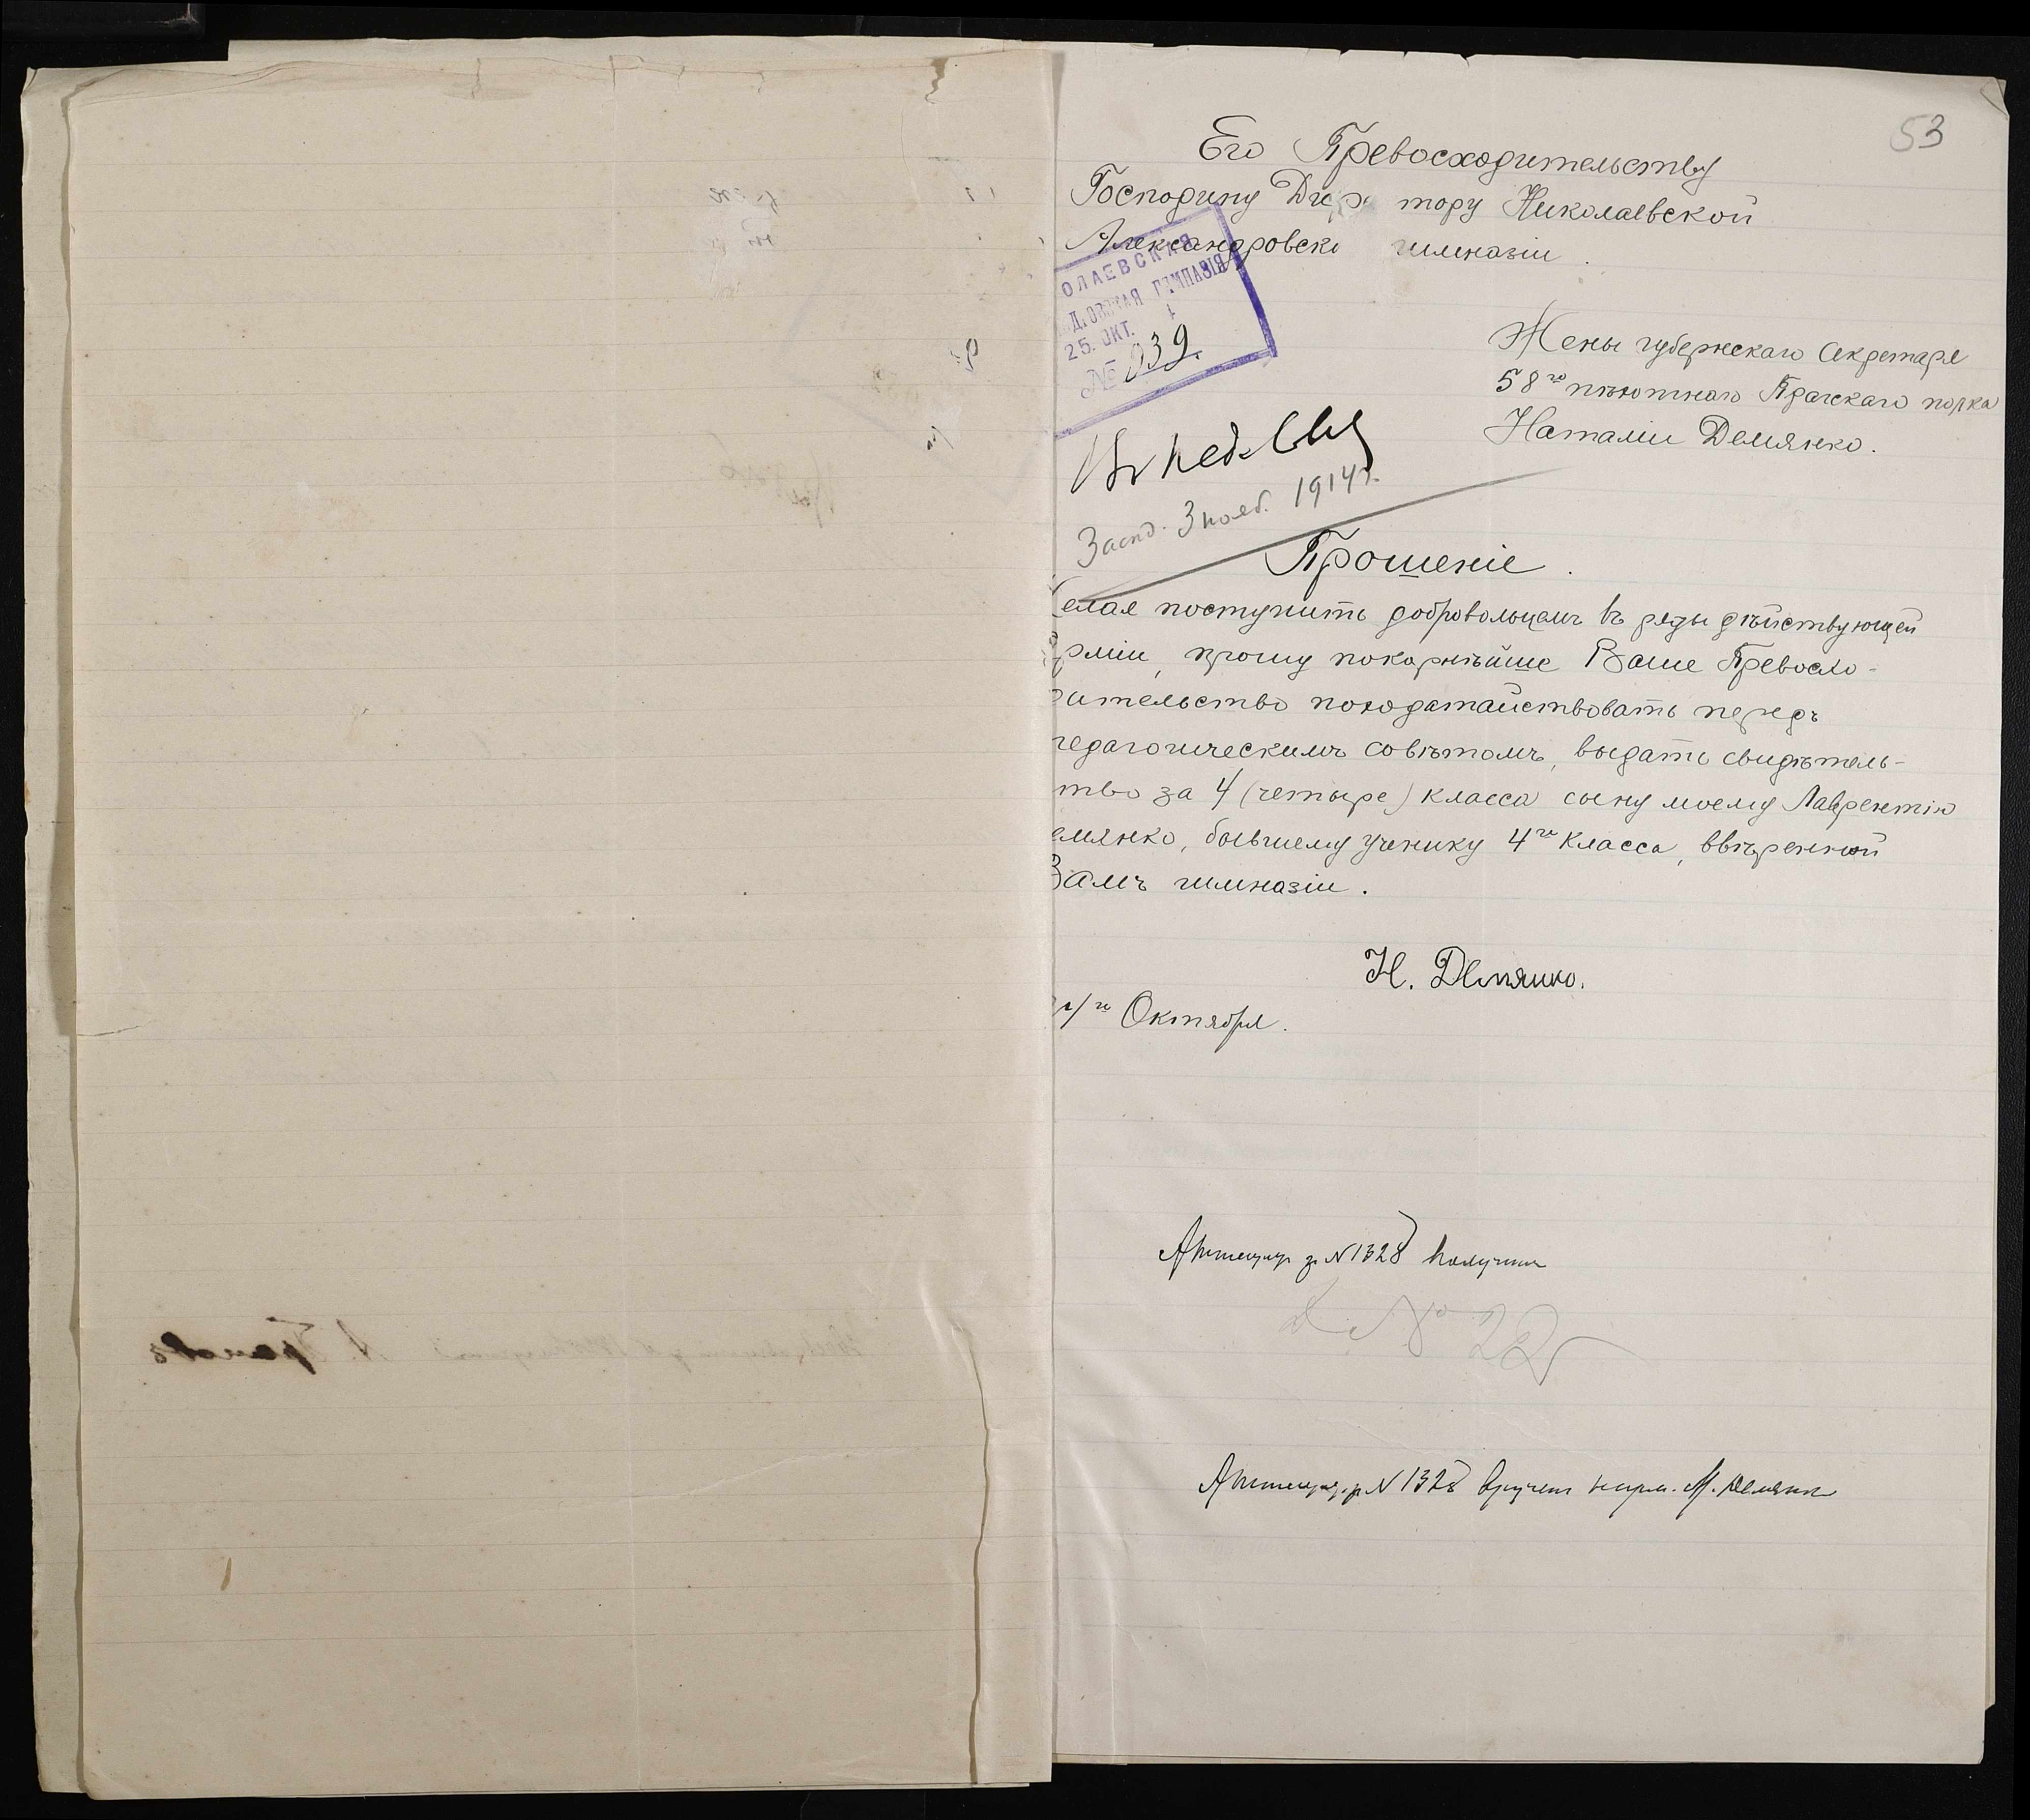 53
Его Превосходительству
Господину Дире тору Николаевской
Александровско гимназіи.
ОЛАЕВСКАЯ
Д.ОВСКАЯ ГИМНАЗІЯ
25. ОКТ. 1
№ 939.
Жены губернскаго Секретаря
58го пѣхотнаго Прагскаго полка
Наталіи Демянко.
Засѣд. 3 нояб. 1914 г.
Прошеніе.
елая поступить добровольцемъ въ ряды дѣйствующей
рміи, прошу покорнѣйше Ваше Превосхо-
дительство походатайствовать передъ
педагогическимъ совѣтомъ, выдать свидѣтель-
тво за 4 (четыре) класса сыну моему Лаврентію
емянко, бывшему ученику 4го класса, ввѣренной
Вамъ гимназіи.
Н. Демянко.
24го Октября.
N 1328 получил
№ 22
N 1328 вручен М. Демянко